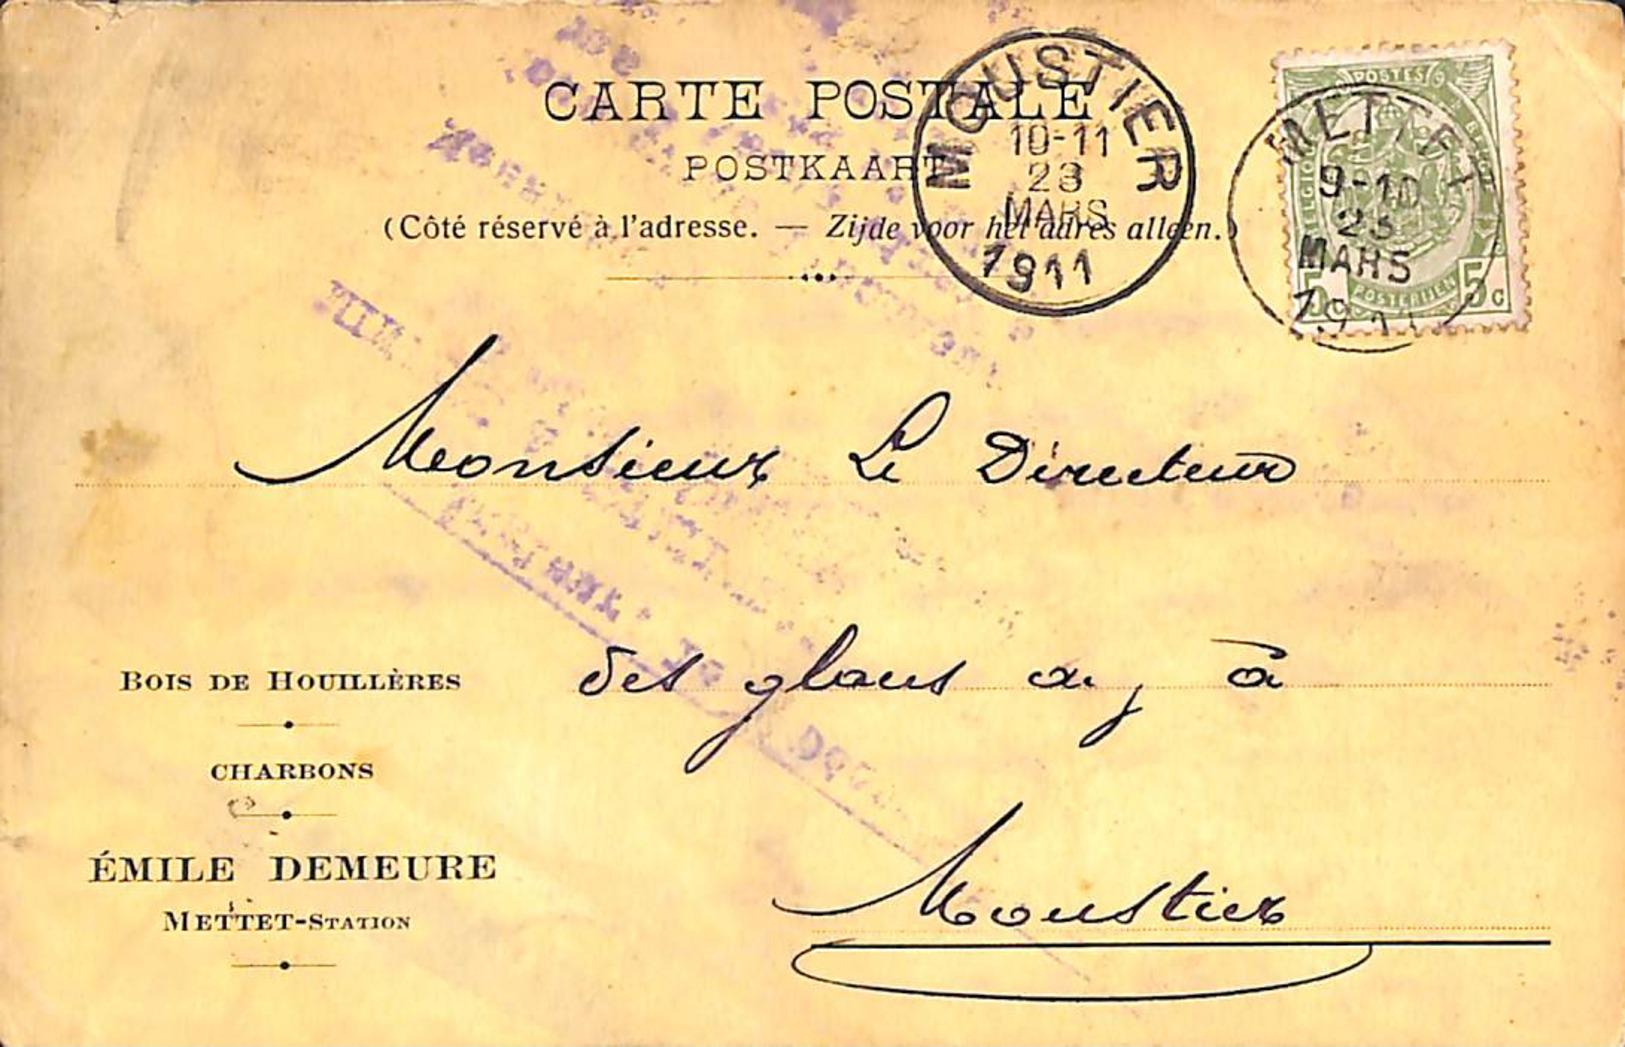 CARTE POSTALE
POSTKAART
(Côté réservé à l'adresse. — Zijde voor het adres alleen.)
MOUSTIER
10-11
23
MARS
1911
POSTES
BELGIQUE
BELGIË
5c 5c
POSTERIJEN
METTET
9-10
23
MARS
1911
Monsieur Le Directeur
des glaces à
Moustier
BOIS DE HOUILLÈRES
CHARBONS
ÉMILE DEMEURE
METTET-STATION